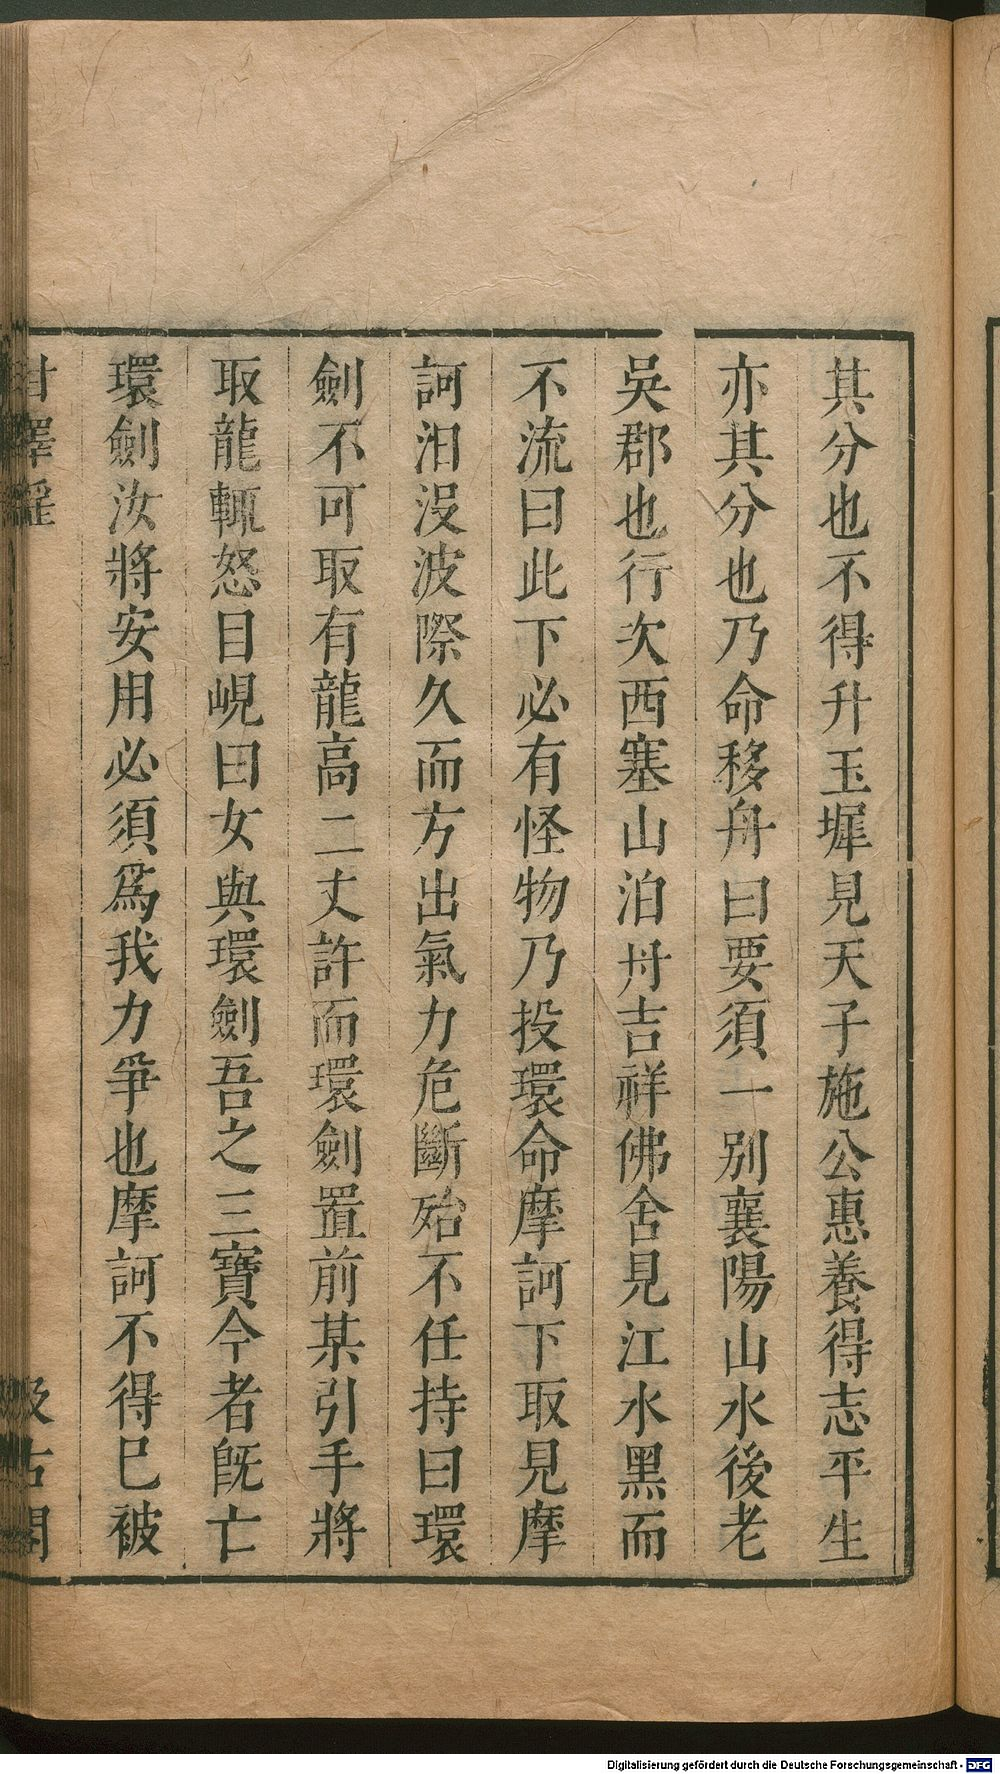 其分也不得升玉墀見天子施公惠養得志平生
亦其分也乃命移舟曰要須一別襄陽山水後老
吳郡也行次西塞山泊舟吉祥佛舍見江水黑而
不流曰此下必有怪物乃投環命摩訶下取見摩
訶汨沒波際久而方出氣力危斷殆不任持曰環
劍不可取有龍高二丈許而環劍置前某引手將
取龍輒怒目峴曰女與環劍吾之三寶今者旣亡
環劍汝將安用必須爲我力爭也摩訶不得巳被
甘澤謠
汲古閣
Digitalisierung gefördert durch die Deutsche Forschungsgemeinschaft - DFG